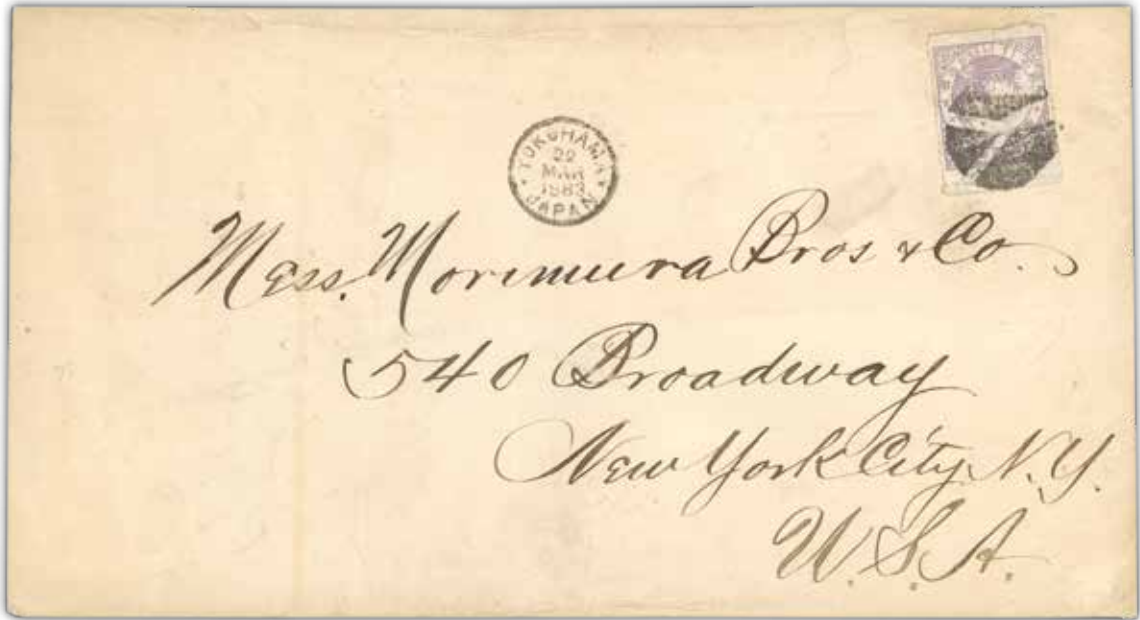 YOKOHAMA
22
MAR
1883
JAPAN
Mess. Morimura Bros & Co.
540 Broadway
New York City, N.Y.
U.S.A.